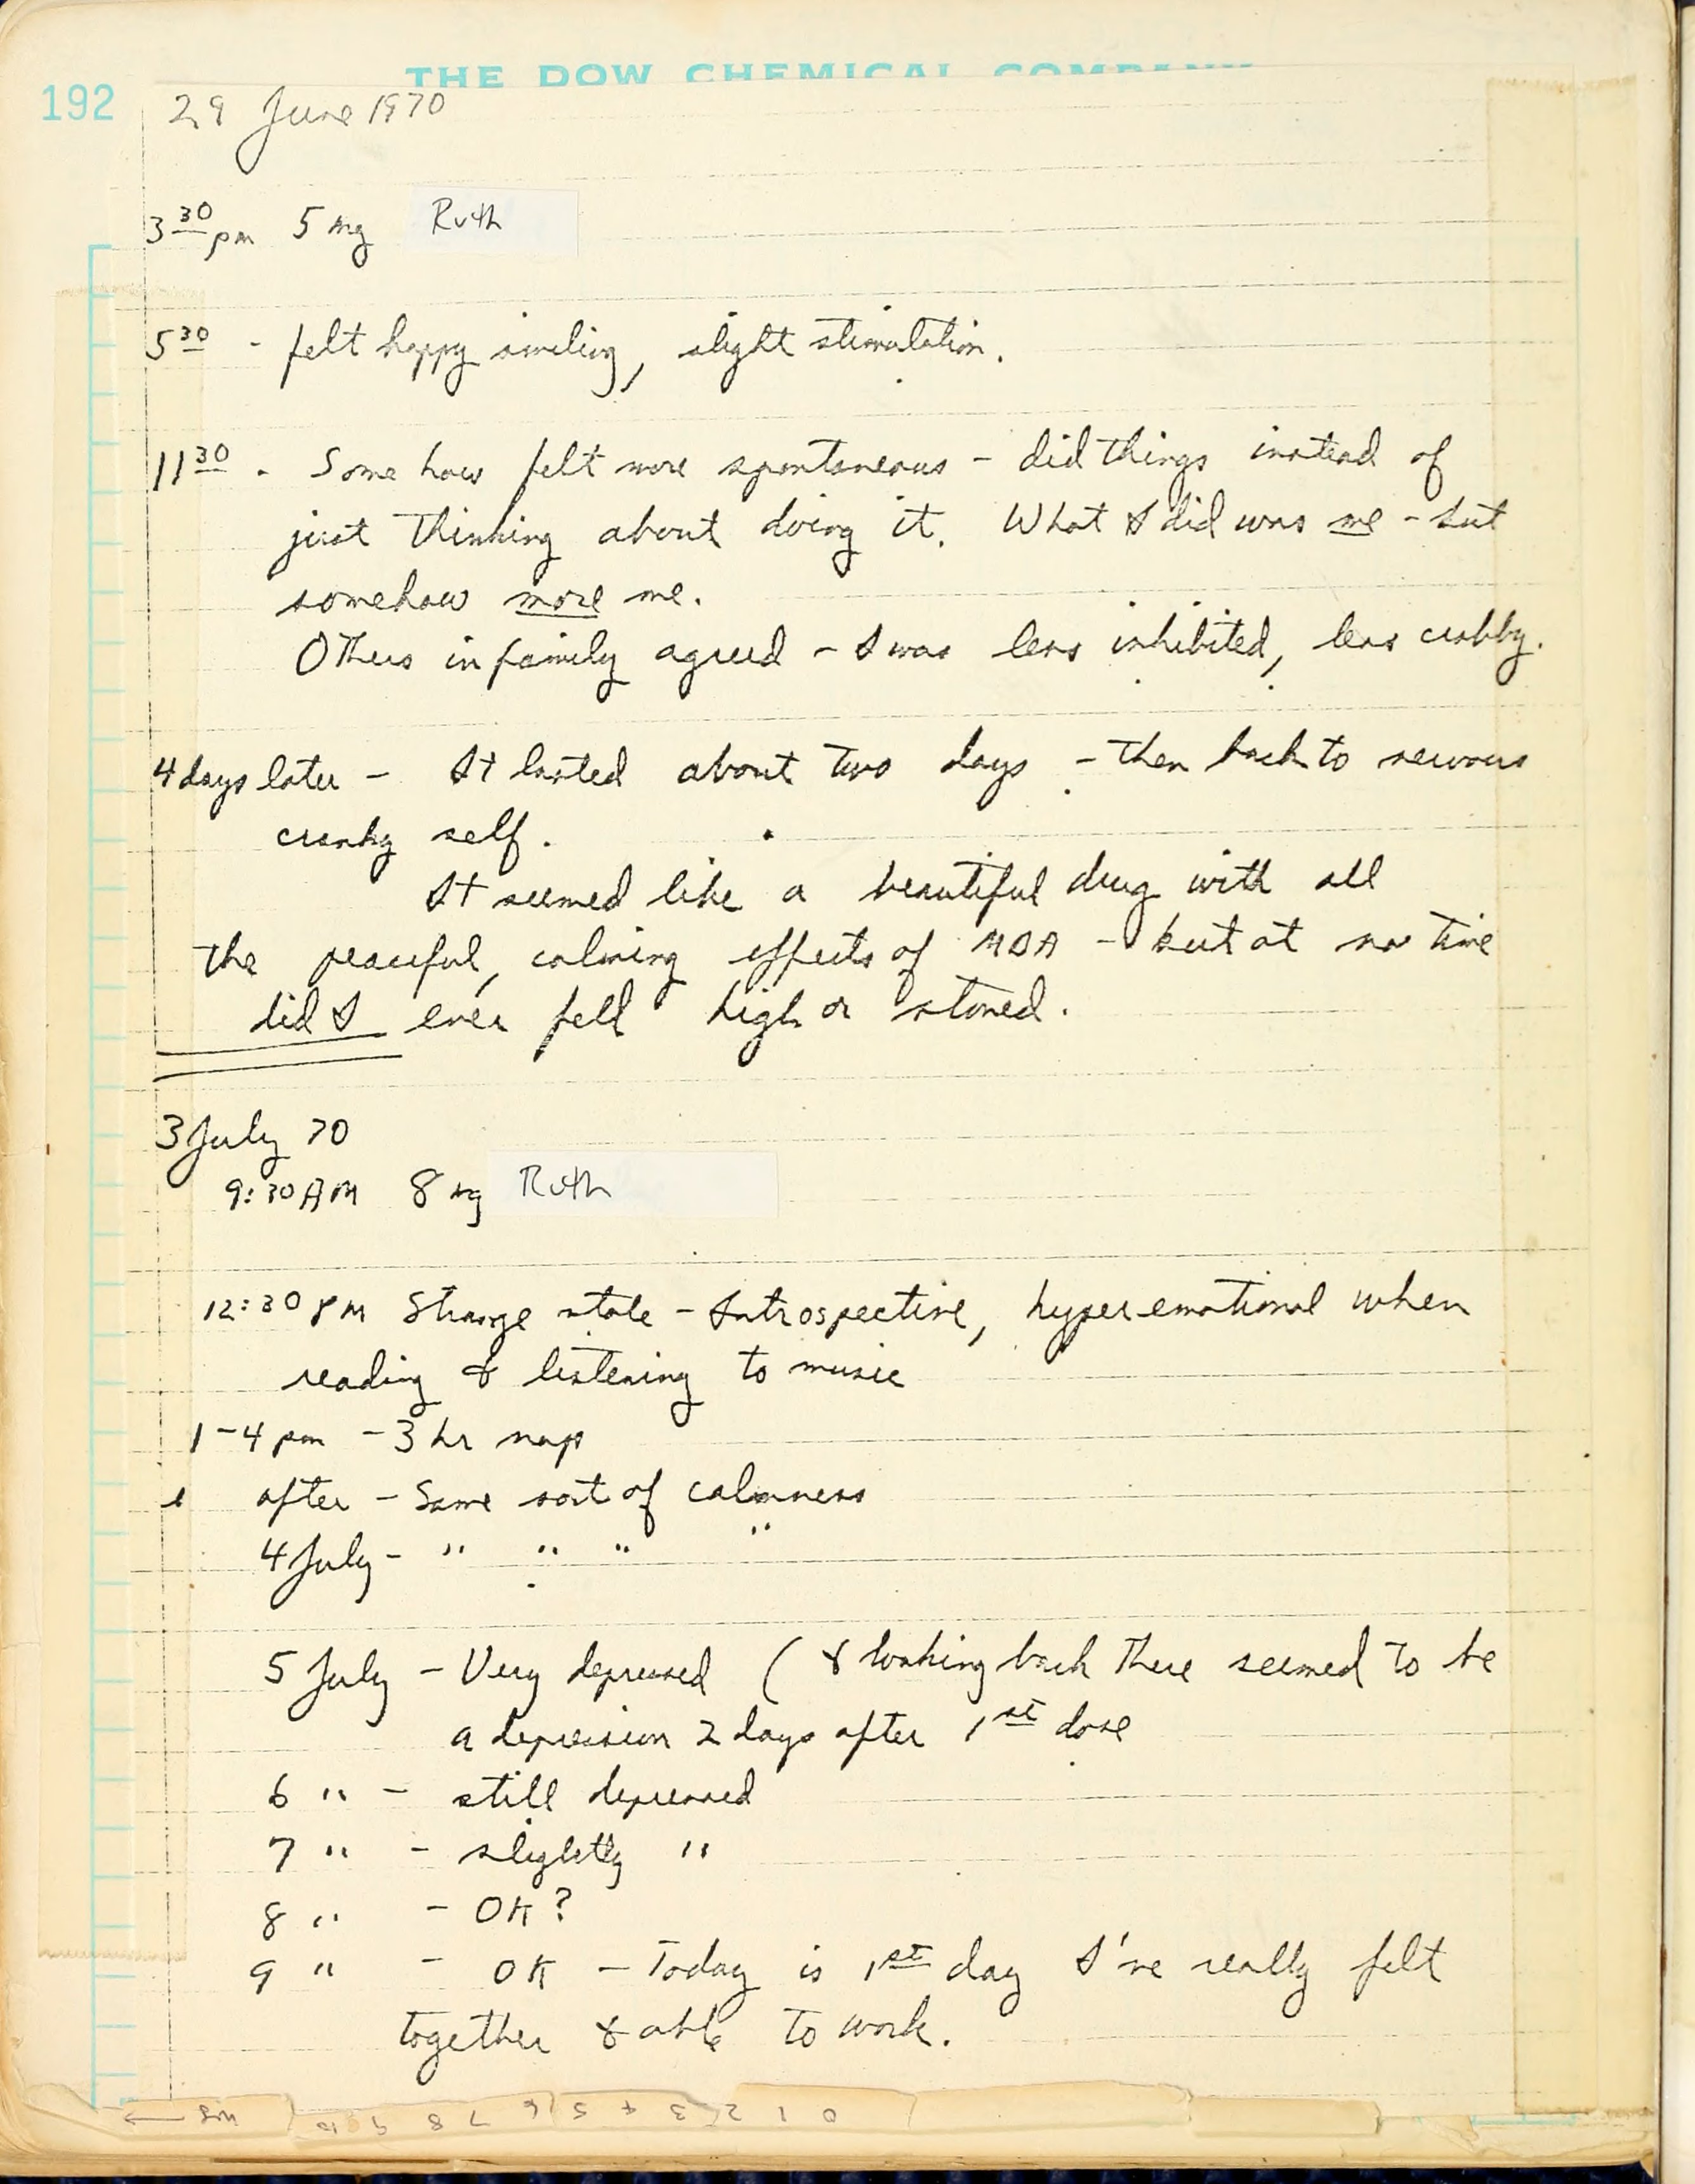 THE DOW CHEMICAL COMPANY
192
29 June 1970
3 30 pm 5 mg Ruth
5 30 - felt happy smiling, slight stimulation.
11 30 - Some how felt more spontaneous - did things instead of
just thinking about doing it. What I did was me - but
somehow more me.
Others in family agreed - I was less inhibited, less crabby.
4 days later - It lasted about two days - then back to nervous
cranky self.
It seemed like a beautiful drug with all
the peaceful, calming effects of MDA - but at no time
did I ever fell high or stoned.
3 July 70
9:30 AM 8 mg Ruth
12:30 PM Strange state - Introspective, hyperemotional when
reading & listening to music
1-4 pm - 3 hr nap
after - Same sort of calmness
4 July - " " " "
5 July - Very depressed ( & looking back there seemed to be
a depression 2 days after 1st dose
6 " - still depressed
7 " - slightly "
8 " - OK?
9 " - OK - Today is 1st day I've really felt
together & able to work.
0 1 2 3 4 5 6 7 8 9 10